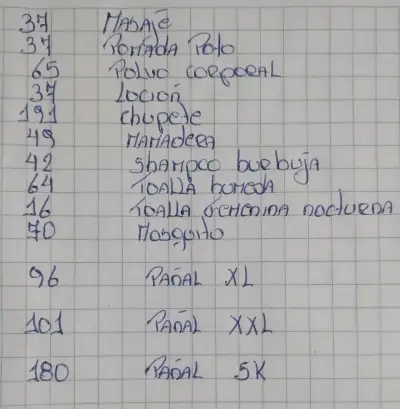 37 MASAJE
37 POMADA POTO
65 POLVO CORPORAL
37 LOCIÓN
191 chupete
49 MAMADERA
42 SHAMPOO burbuja
64 TOALLA humeda
16 TOALLA femenina nocturna
70 Mosquito
96 PAÑAL XL
101 PAÑAL XXL
180 PAÑAL SK